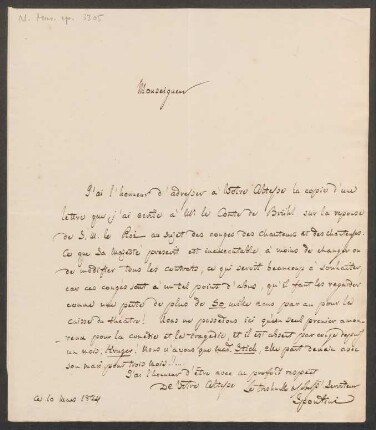 N. Mus. ep. 1305
Monseigneur
J'ai l'honneur d'adresser a Votre Altesse la copie d'une
lettre que j'ai écrite a Mr. le Conte de Brühl sur la reponse
de S. M. le Roi au sujet des congés des chanteurs et des chanteuses.
Ce que Sa Majesté prescrit est inexécutable, à moins de changer ou
de modifier tous les contrats, ce qui seroit beaucoup à souhaiter,
car ces congés sont à un tel point d'abus, qu'il faut les regarder
comme une perte de plus de 30 mille écus, par an pour la
caisse du theatre! Nous ne possedons ici qu'un seul premier amou-
reux pour la comédie et la tragedie, et il est absent par congé depuis
un mois, Krüger! Nous n'avons que Mad. Stich, elle part demain avec
son mari pour trois mois!...
J'ai l'honneur d'être avec un profond respect
De Votre Altesse
Serviteur
Spontini
ce 10 mars 1824